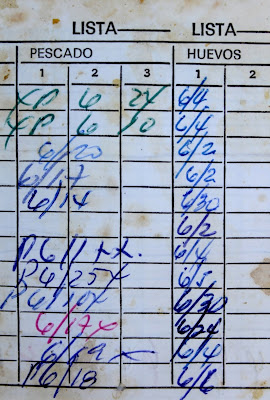 LISTA LISTA
PESCADO HUEVOS
1 2 3 1 2
XP 6 24 6/4
XP 6 10 6/4
6/20 6/2
6/17 6/2
6/14 6/30
6/2
6/4
P 6/25x 6/5
P 6/10x 6/30
6/17x 6/24
6/19 6/4
P6/18 6/6